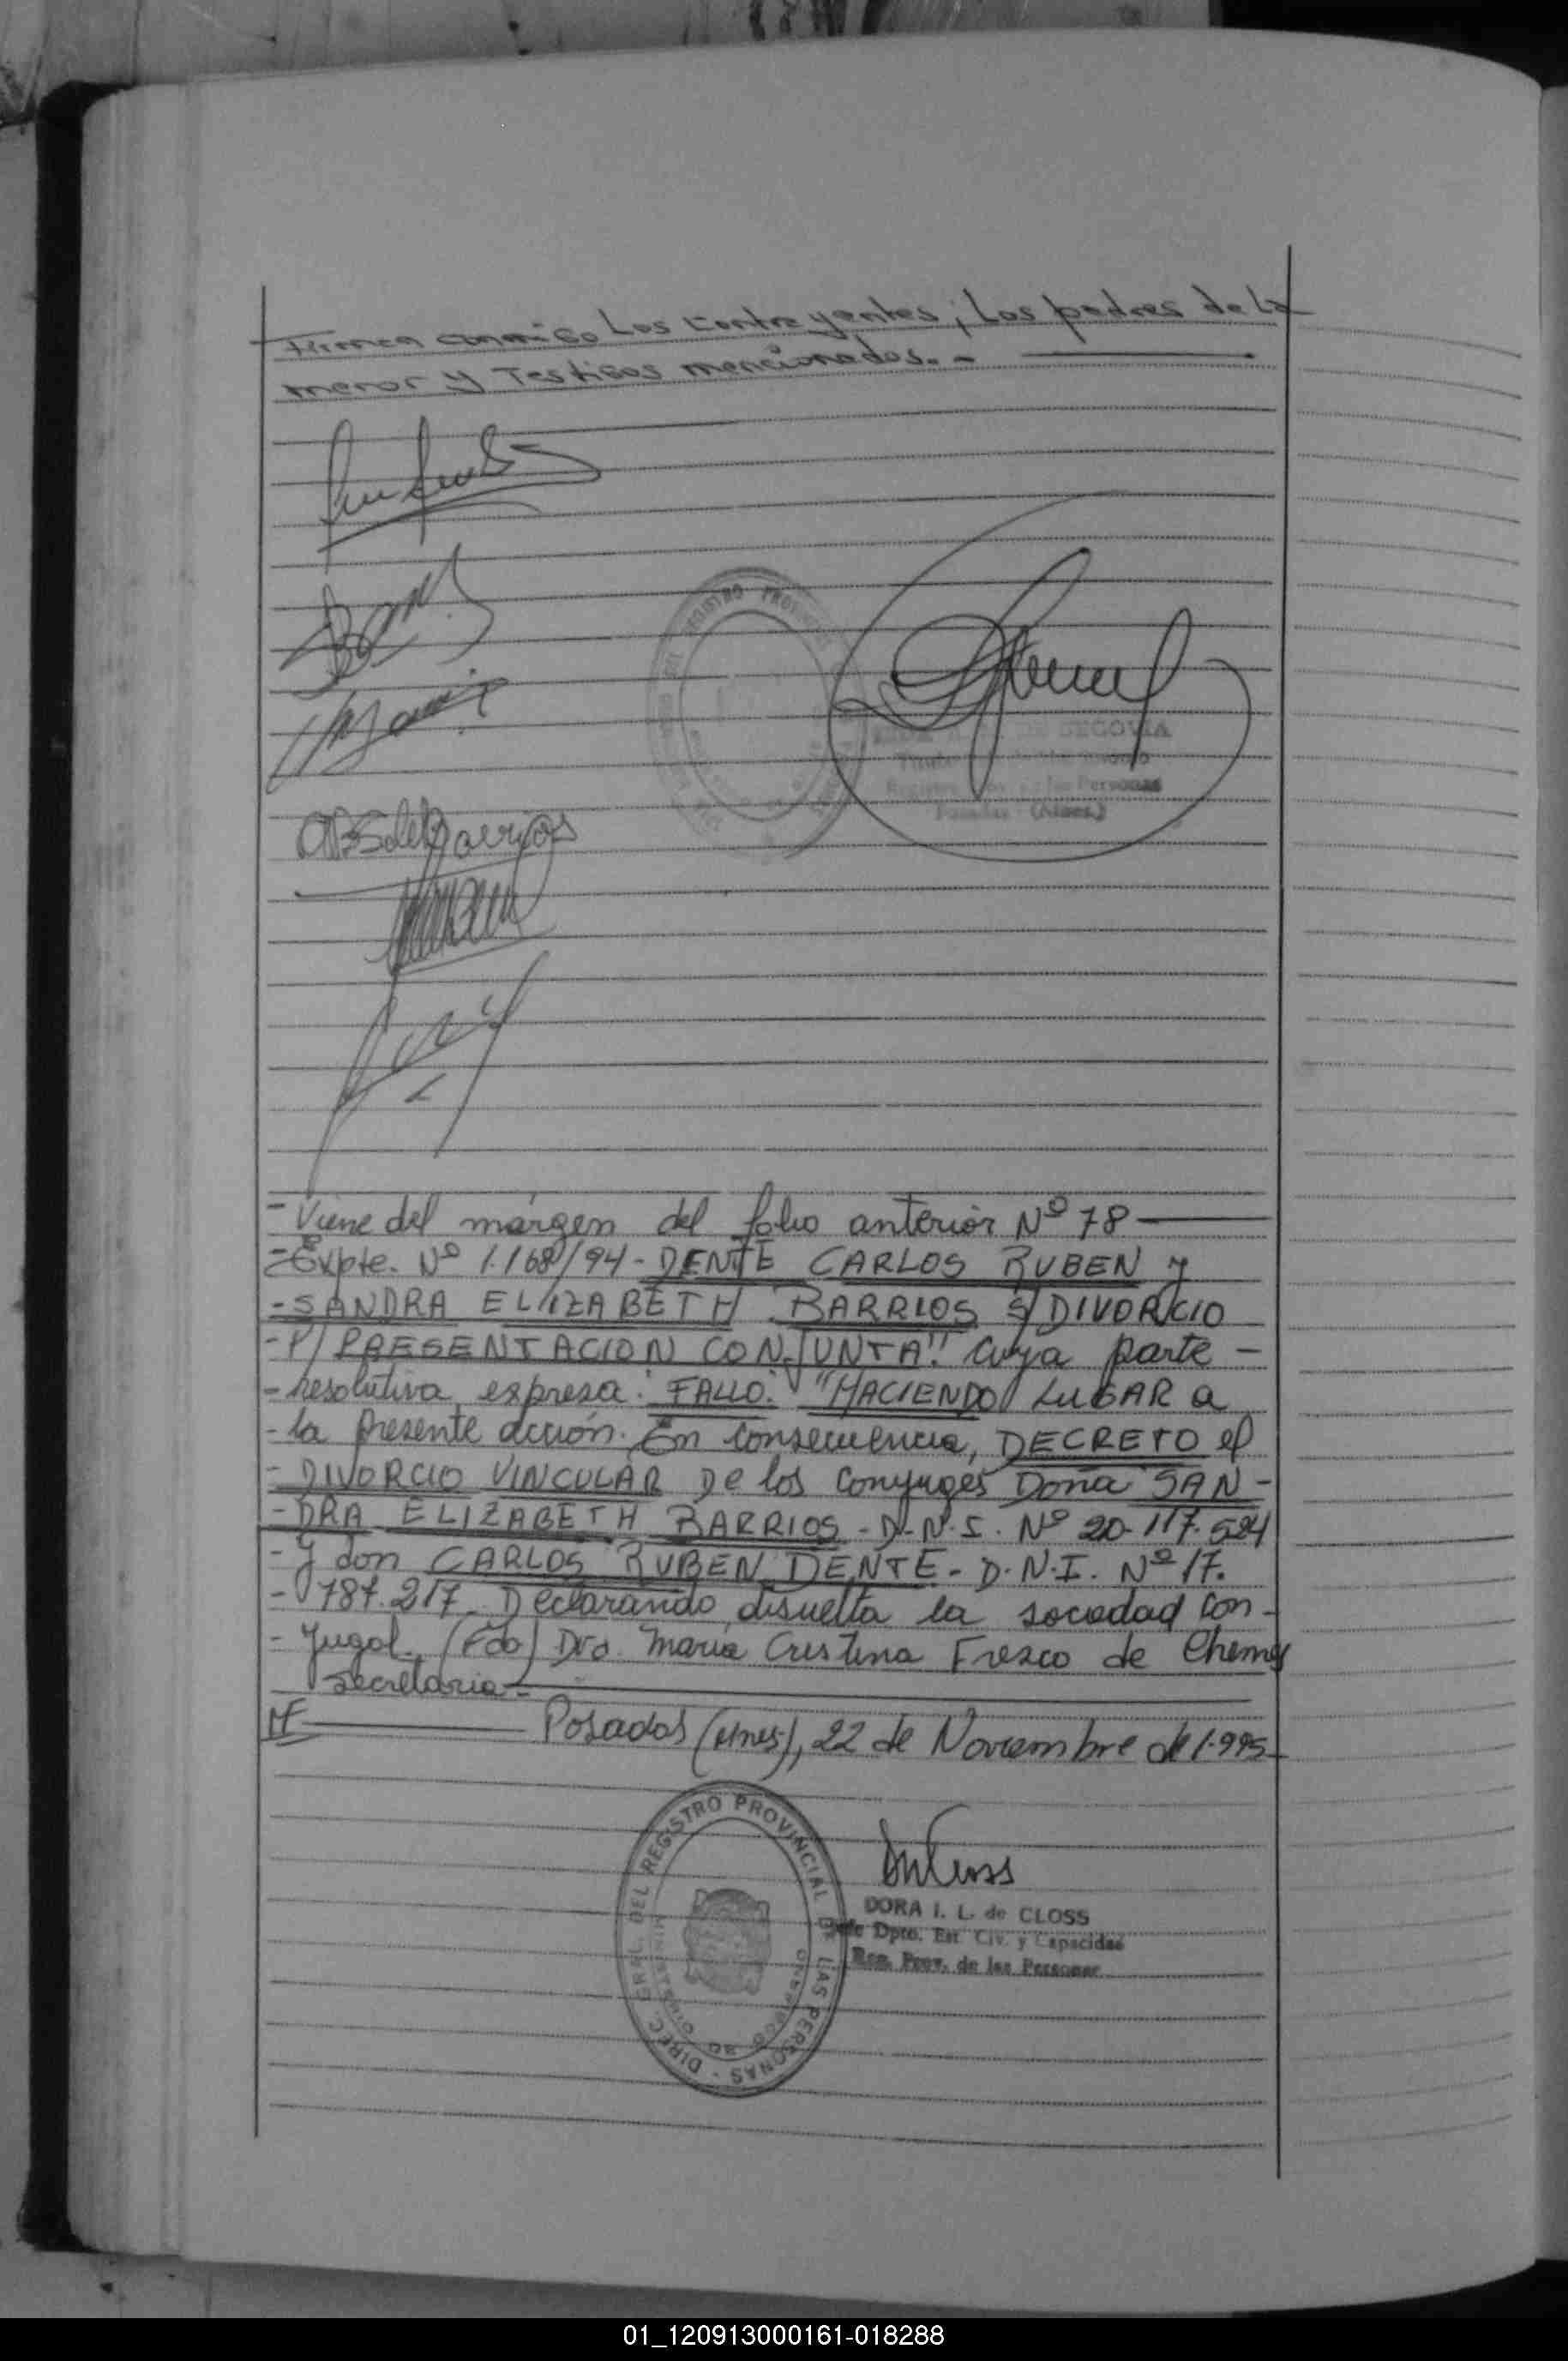 Firman conmigo Los contrayentes; Los padres de La
menor y Testigos mencionados. -
de Barrios
REGISTRO PROVINCIAL
DE SEGOVIA
Personas
Posadas (Mnes.)
- Viene del márgen del folio anterior Nº 78
- Expte. Nº 1.168/94 - DENTE CARLOS RUBEN y
- SANDRA ELIZABETH BARRIOS S/ DIVORCIO
- P/ PRESENTACION CONJUNTA". Cuya parte -
- resolutiva expresa: FALLO: "HACIENDO LUGAR a
- la presente acción. En consecuencia, DECRETO el
- DIVORCIO VINCULAR De los conyuges Doña SAN -
- DRA ELIZABETH BARRIOS - D.N.I. Nº 20.117.524
- y don CARLOS RUBEN DENTE - D.N.I. Nº 17.
- 787.217. Declarando disuelta la sociedad con -
- yugal. (Fdo) Dra. María Cristina Fresco de Chemes
Secretaria -
Posadas (Mnes), 22 de Noviembre de 1.995
DIREC. GRAL. DEL REGISTRO PROVINCIAL DE LAS PERSONAS -
MINISTERIO DE GOBIERNO
DORA I. L. de CLOSS
Jefe Dpto. Est. Civ. y Capacidad
Reg. Prov. de las Personas
01_120913000161-018288